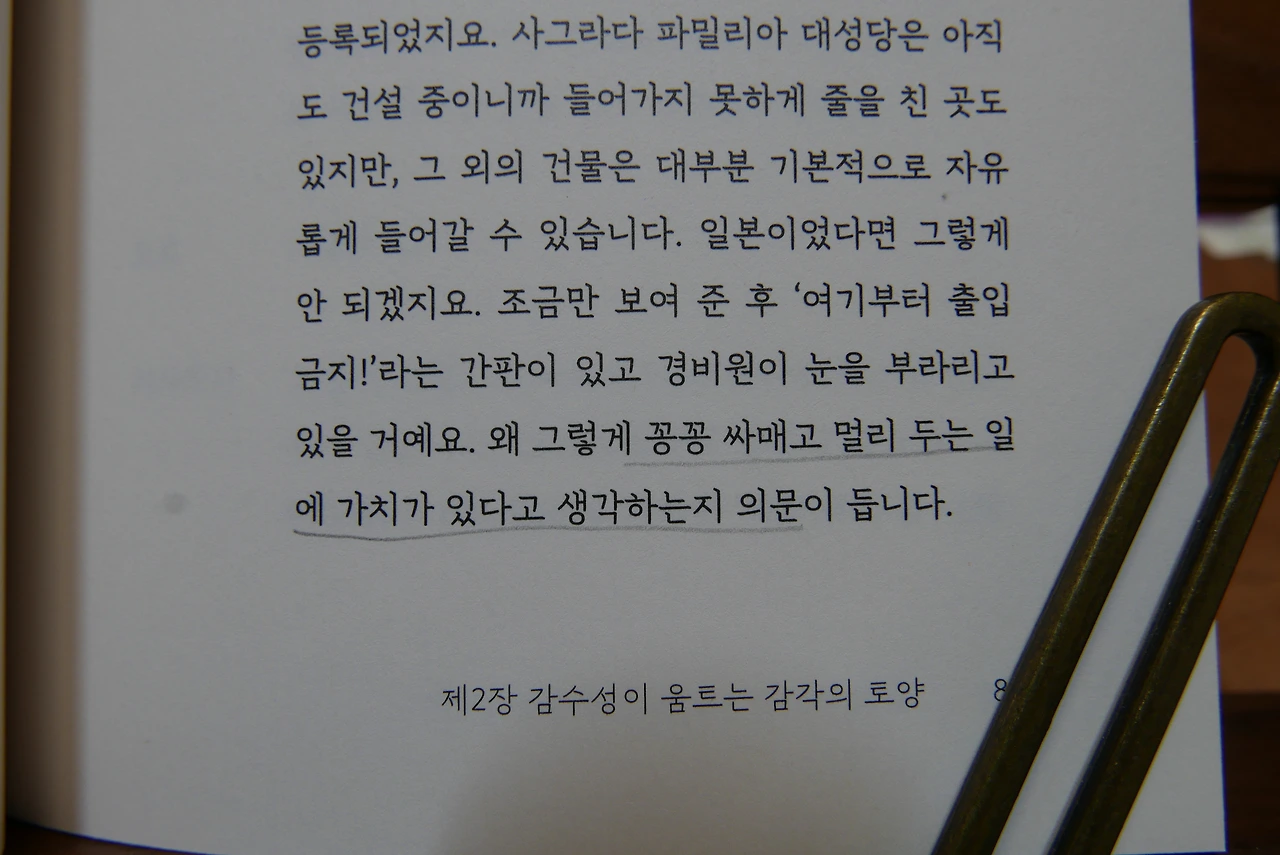 등록되었지요. 사그라다 파밀리아 대성당은 아직
도 건설 중이니까 들어가지 못하게 줄을 친 곳도
있지만, 그 외의 건물은 대부분 기본적으로 자유
롭게 들어갈 수 있습니다. 일본이었다면 그렇게
안 되겠지요. 조금만 보여 준 후 ‘여기부터 출입
금지!’라는 간판이 있고 경비원이 눈을 부라리고
있을 거예요. 왜 그렇게 꽁꽁 싸매고 멀리 두는 일
에 가치가 있다고 생각하는지 의문이 듭니다.
제2장 감수성이 움트는 감각의 토양